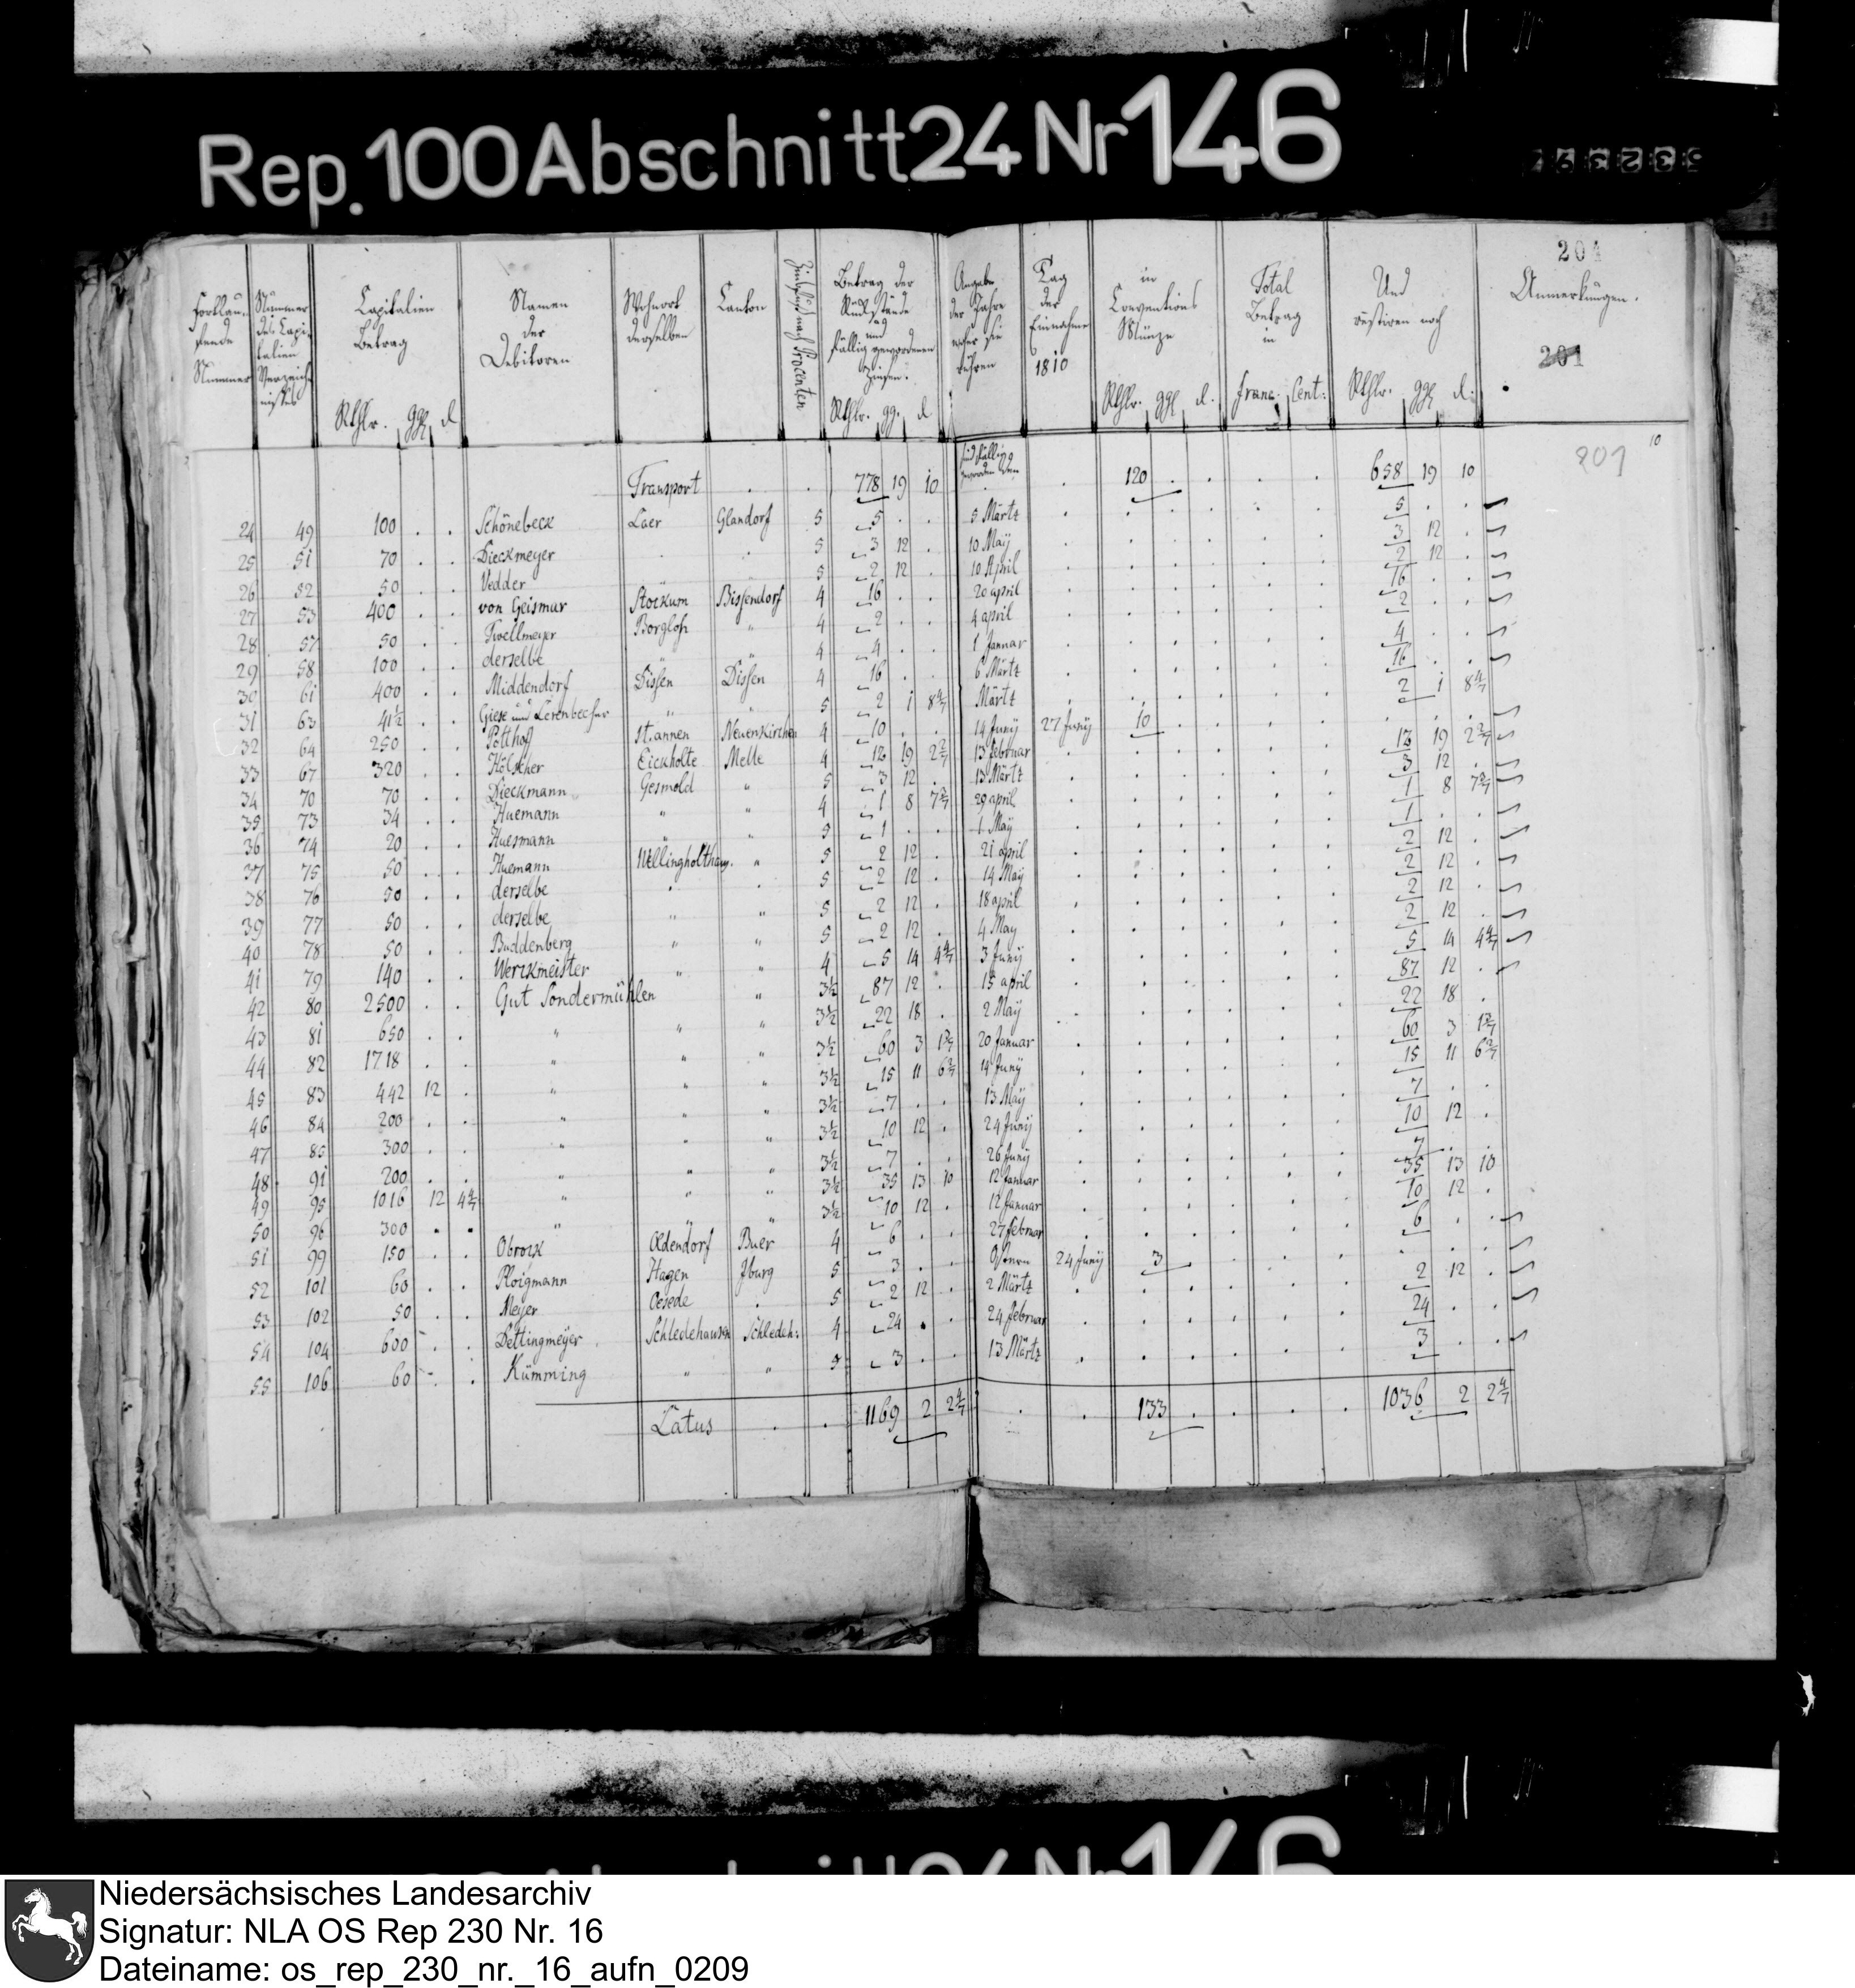 Rep. 100 Abschnitt 24 Nr 146
201
Fortlaufende Nummer | Nummer des Capitalien Verzeichnisses | Capitalien Betrag Rthlr. ggl d | Namen der Debitoren | Wohnort derselben | Canton | Zinsfuß nach Procenten | Betrag der Rückstände und fällig gewordenen Zinsen. Rthlr. gg. d | Angabe der Jahre woher sie rühren | Tag der Einnahme 1810 | in Conventions Münze Rthlr. ggl d. | Total Betrag in Franc. Cent: | Und restiren noch Rthlr. ggl d: | Anmerkungen.
201
201
10
Transport . . 778 19 10 sind fällig geworden den . 120 . . . . 658 19 10
24 49 100 . . Schönebeck Laer Glandorf 5 5 . . 5 Märtz . . . . . . 5 . .
25 51 70 . . Dieckmeyer . . 5 3 12 . 10 Maÿ . . . . . . 3 12 .
26 52 50 . . Vedder . . 5 2 12 . 10 April . . . . . . 2 12 .
27 53 400 . . von Geismar Stockum Bissendorf 4 16 . . 20 april . . . . . . 16 . .
28 57 50 . . Twellmeyer Borgloh " 4 2 . . 4 april . . . . . . 2 . .
29 58 100 . . derselbe " 4 4 . . 1 Januar . . . . . . 4 . .
30 61 400 . . Middendorf Dissen Dissen 4 16 . . 6 Märtz . . . . . . 16 . .
31 63 41½ . . Giese und " " 5 2 1 8 4/7 Märtz . . . . . . 2 1 8 4/7
32 64 250 . . Potthof St. annen Neuenkirchen 4 10 . . 14 Junÿ 27 Junÿ 10 . . . . . . .
33 67 320 . . Hölscher Eickholte Melle 4 12 19 2 2/7 13 Februar . . . . . . 12 19 2 2/7
34 70 70 . . Dieckmann Gesmold " 5 3 12 . 13 Märtz . . . . . . 3 12 .
35 73 34 . . Huemann " " 4 1 8 7 5/7 29 april . . . . . . 1 8 7 5/7
36 74 20 . . Huesmann " " 5 1 . . 1 Maÿ . . . . . . 1 . .
37 75 50 . . Huemann Wellingholthaus. " 5 2 12 . 21 april . . . . . . 2 12 .
38 76 50 . . derselbe " " 5 2 12 . 14 Maÿ . . . . . . 2 12 .
39 77 50 . . derselbe " " 5 2 12 . 18 april . . . . . . 2 12 .
40 78 50 . . Buddenberg " " 5 2 12 . 4 May . . . . . . 2 12 .
41 79 140 . . Werckmeister " " 4 5 14 4 4/7 3 Junÿ . . . . . . 5 14 4 4/7
42 80 2500 . . Gut Sondermühlen " 3½ 87 12 . 15 april . . . . . . 87 12 .
43 81 650 . . " " " 3½ 22 18 . 2 Maÿ . . . . . . 22 18 .
44 82 1718 . . " " " 3½ 60 3 1 5/7 20 Januar . . . . . . 60 3 1 5/7
45 83 442 12 . " " " 3½ 15 11 6 2/7 14 Junÿ . . . . . . 15 11 6 2/7
46 84 200 . . " " " 3½ 7 . . 13 Maÿ . . . . . . 7 . .
47 85 300 . . " " " 3½ 10 12 . 24 Junÿ . . . . . . 10 12 .
48 91 200 . . " " " 3½ 7 . . 26 Junÿ . . . . . . 7 . .
49 95 1016 12 4 4/7 " " " 3½ 35 13 10 12 Januar . . . . . . 35 13 10
50 96 300 . . " " " 3½ 10 12 . 12 Januar . . . . . . 10 12 .
51 99 150 . . Obrock Oldendorf Buer 4 6 . . 27 Februar . . . . . . 6 . .
52 101 60 . . Ploigmann Hagen Iburg 5 3 . . Ostern 24 Junÿ 3 . . . . . . .
53 102 50 . . Meyer Oesede . 5 2 12 . 2 Märtz . . . . . . 2 12 .
54 104 600 . . Dettingmeÿer Schledehausen Schledeh: 4 24 . . 24 Februar . . . . . . 24 . .
55 106 60 . . Kümming " " 5 3 . . 13 Märtz . . . . . . 3 . .
Latus . . 1169 2 2 4/7 . . 133 . . . . 1036 2 2 4/7
Niedersächsisches Landesarchiv
Signatur: NLA OS Rep 230 Nr. 16
Dateiname: os_rep_230_nr._16_aufn_0209